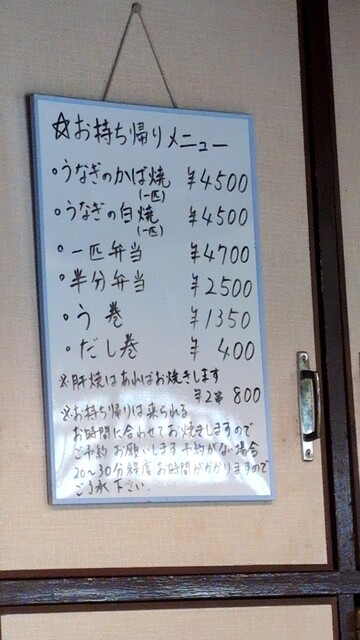 ☆お持ち帰りメニュー
・うなぎのかば焼 ¥4500
(一匹)
・うなぎの白焼 ¥4500
(一匹)
・一匹弁当 ¥4700
・半分弁当 ¥2500
・う巻 ¥1350
・だし巻 ¥400
※肝焼はあればお焼きします
¥2串 800
※お持ち帰りは来られる
お時間に合わせてお焼きしますので
ご予約お願いします 予約がない場合
20〜30分程度お時間がかかりますので
ご了承下さい。